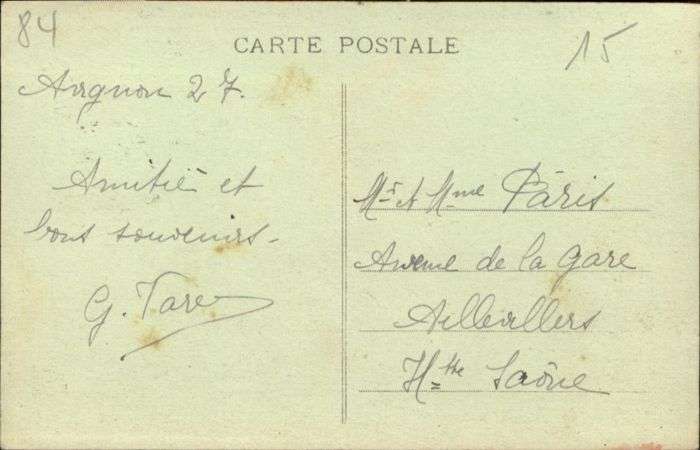 84
CARTE POSTALE
15
Avignon 27.
Amitié et
bons souvenirs.
G.
Mr et Mme Pâris
Avenue de la gare
Aillevillers
Hte Saône